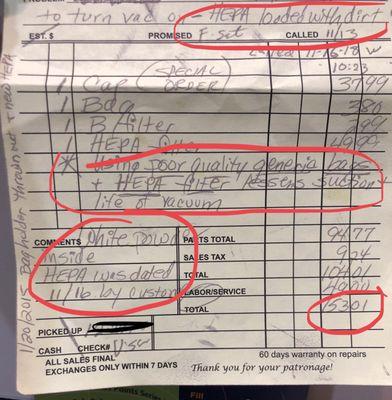 to turn vac on - HEPA loaded with dirt
EST. $ PROMISED F-Set CALLED 11/13
11-16-18 W
10:23
1 Cap (SPECIAL ORDER) 3799
1 Bag 380
1 B filter 399
1 HEPA filter 4999
* Using poor quality generic bags
+ HEPA filter lessens suction +
life of vacuum
COMMENTS White Down
inside
HEPA was dated
11/16 by customer
PARTS TOTAL 9477
SALES TAX 924
TOTAL 10401
LABOR/SERVICE 4900
TOTAL 15301
PICKED UP
CASH CHECK# Visa
ALL SALES FINAL
EXCHANGES ONLY WITHIN 7 DAYS
60 days warranty on repairs
Thank you for your patronage!
1/20/2015 Bag holder thrown out + new HEPA
Points Series
Fill